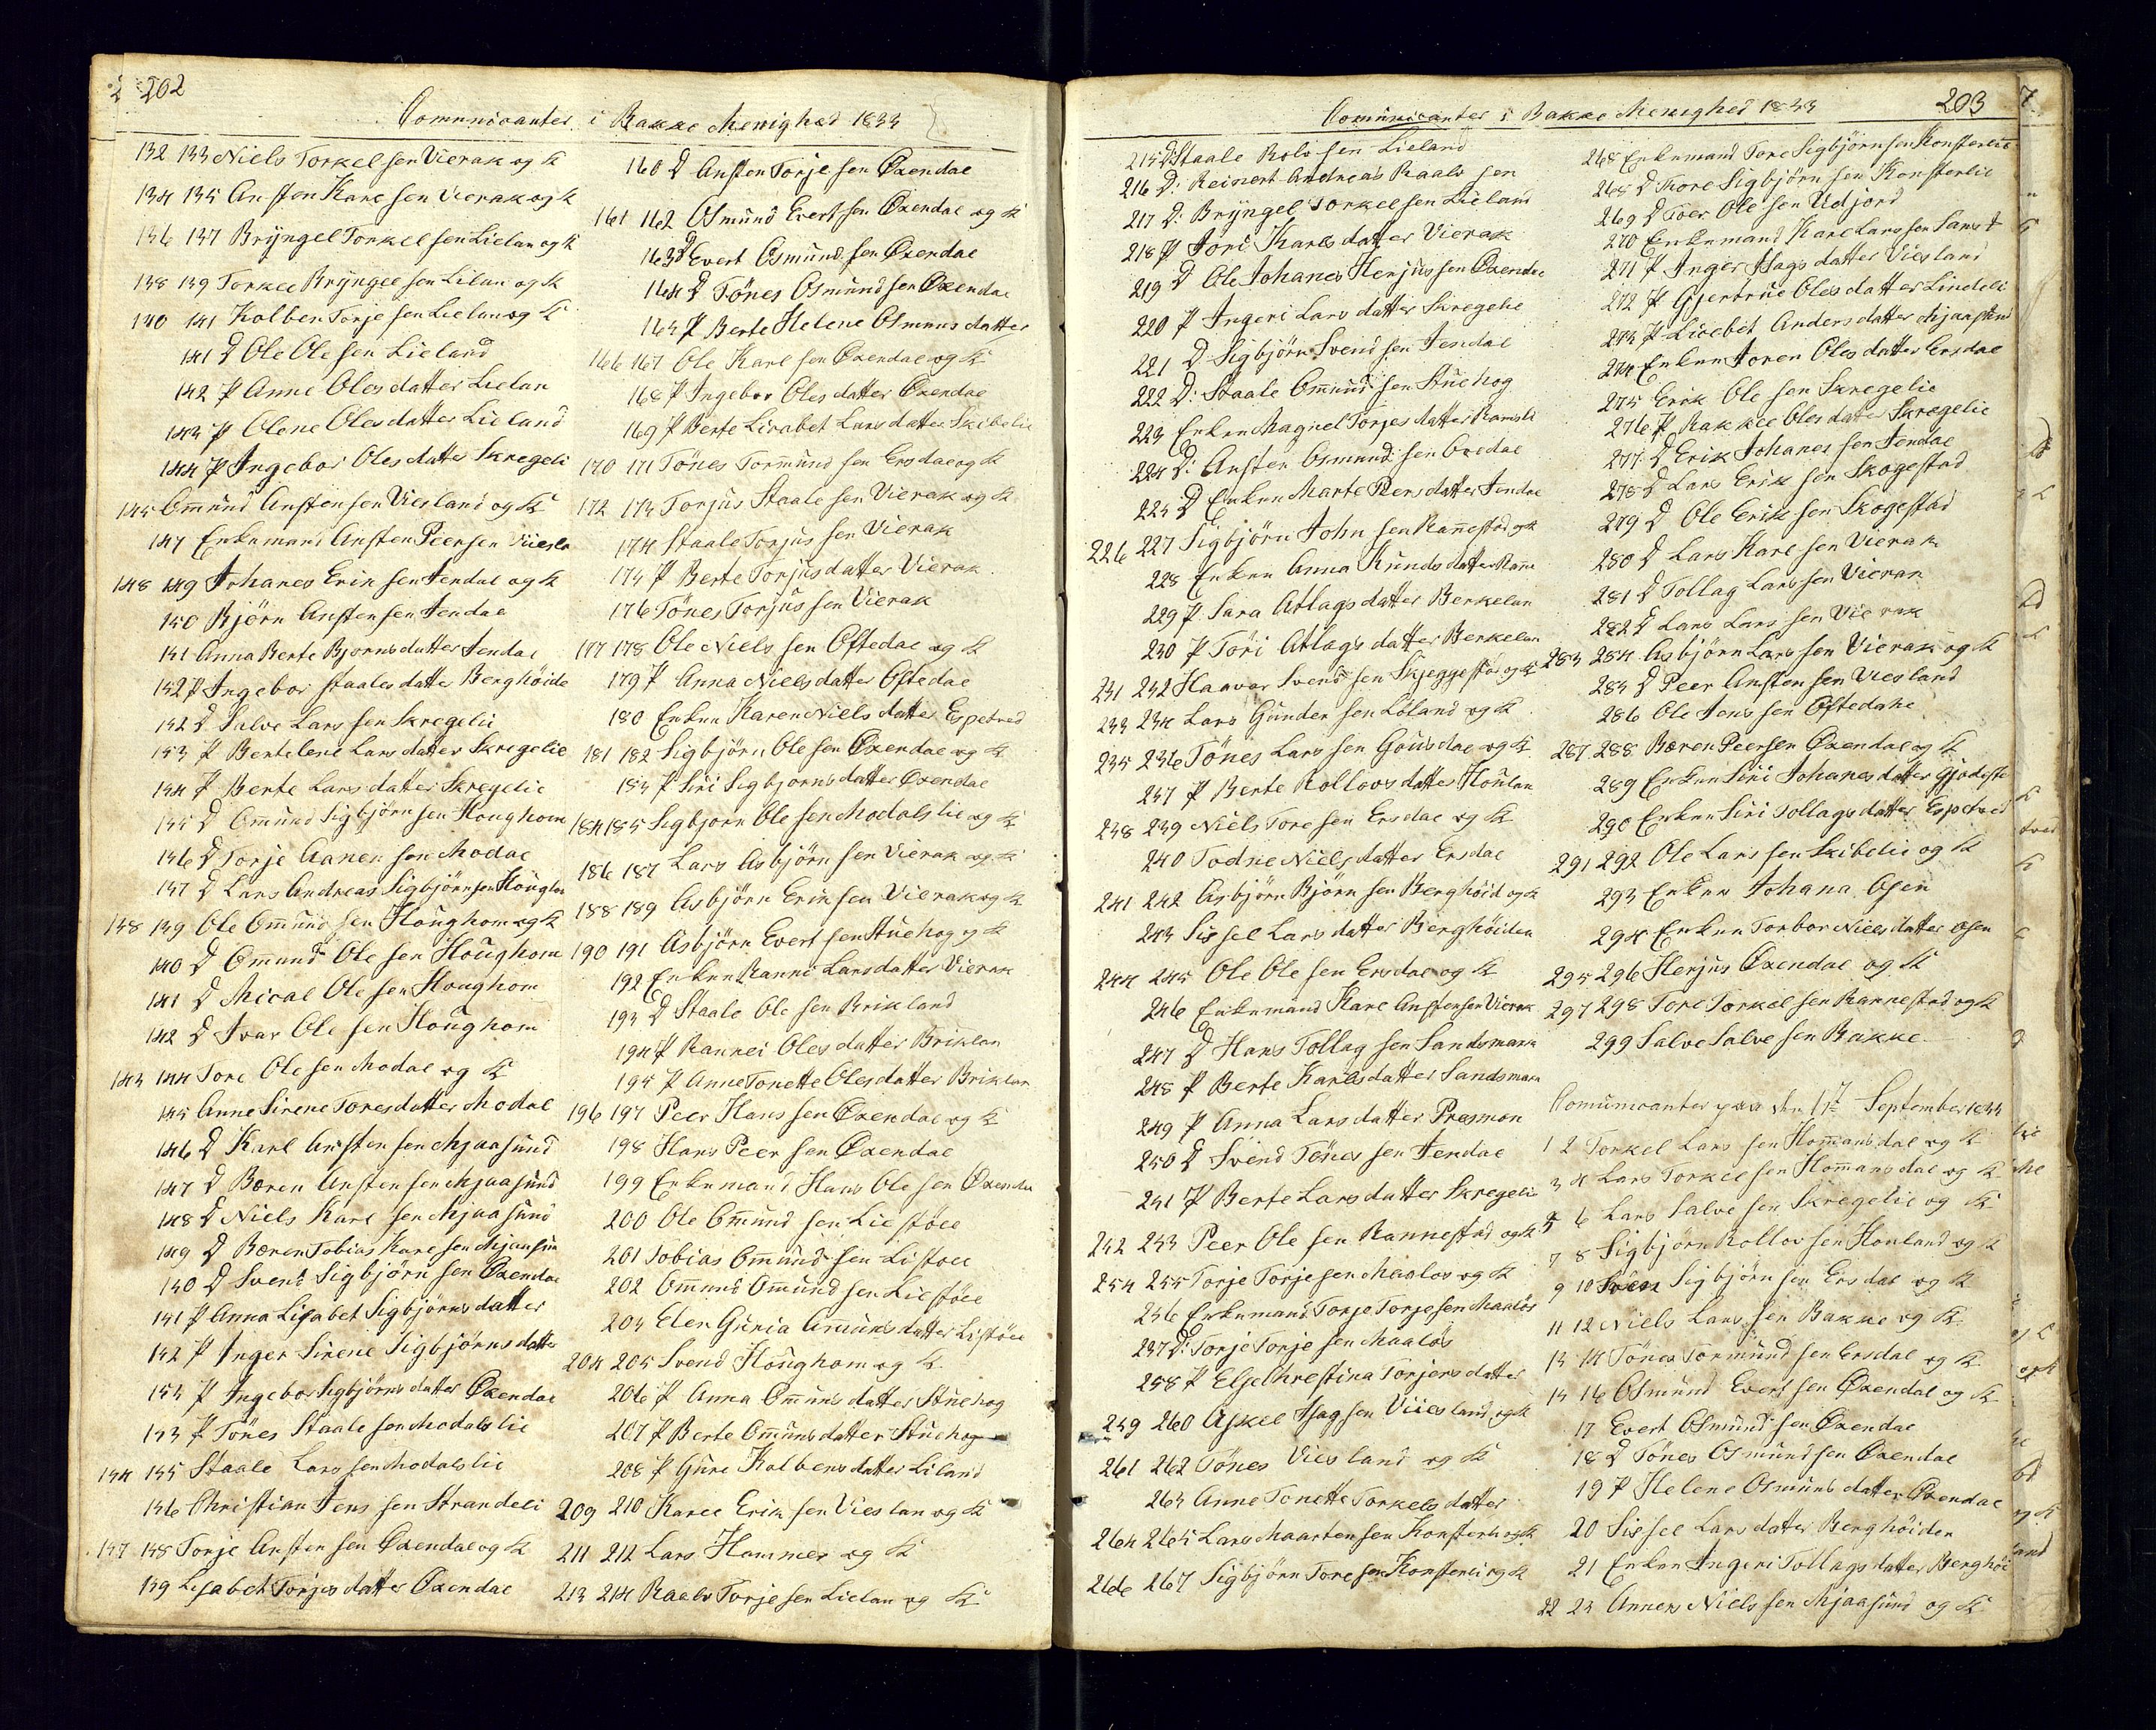 202
Communicanter i Bakke Menighed 1833
132 133 Niels Torkel sen Vierak og K
134 135 Ansten Karl sen Vierak og K
136 137 Bryngel Torkel sen Lielan og K
138 139 Torkel Bryngel sen Lilan og K
140 141 Kolben Torje sen Lielan og K
141 D Ole Ole sen Lieland
142 P Anne Oles datter Lielan
143 P Olene Oles datter Lieland
144 P Ingebor Oles datter Skregeli
145 Omund Ansten sen Viesland og K
147 Enkemand Ansten Peersen
148 149 Johanes Erik sen Jendal og K
150 Bjørn Ansten sen Jendal
151 Anna Berte Bjorns datter Jendal
152 P Ingebor Staales datter Berghöide
152 D Salve Lars sen Skregelie
153 P Bertelene Lars datter Skregelie
154 P Berte Lars datter Skregelie
155 D Omund Sigbjörn sen Houghom
156 D Torje Aanen sen Modal
157 D Lars Andreas Sigbjörn sen
158 159 Ole Omund sen Houghom og K
140 D Omund Ole sen Houghom
141 D Mical Ole sen Houghom
142 D Ivar Ole sen Houghom
143 144 Tore Ole sen Modal og K
145 Anne Sirene Tores datter Modal
146 D Karl Ansten sen Mjaasund
147 D Børen Ansten sen Mjaasund
148 D Niels Karl sen Mjaasund
149 D Børen Tobias Karl sen
150 D Svend Sigbjörn sen Oxendal
151 P Anna Lisabet Sigbjörns datter
152 P Inger Sirene Sigbjörns datter
153 P Ingebor Sigbjörns datter Oxendal
153 P Tönes Staale sen Modalslie
154 155 Staale Lars sen Modalslie
156 Christian Jens sen Strandeli
157 158 Torje Ansten sen Oxendal og K
159 Lisabet Torjes datter Oxendal
160 D Ansten Torje sen Oxendal
161 162 Osmund Evert sen Oxendal og K
163 D Evert Osmund sen Oxendal
164 D Tönes Osmund sen Oxendal
165 P Berte Helene Osmuns datter
166 167 Ole Karl sen Oxendal og K
168 P Ingebor Oles datter Oxendal
169 P Berte Lisabet Lars datter Skibelie
170 171 Tönes Tormund sen Ersdal og K
172 173 Torjus Staale sen Vierak og K
174 Staale Torjus sen Vierak
175 P Berte Torjus datter Vierak
176 Tönes Torjus sen Vierak
177 178 Ole Niels sen Oftedal og K
179 P Anna Niels datter Oftedal
180 Enken Karen Niels datter Espetved
181 182 Sigbjörn Ole sen Oxendal og K
183 P Siri Sigbjorns datter Oxendal
184 185 Sigbjorn Ole sen Modalslie og K
186 187 Lars Asbjörn sen Vierak og K
188 189 Asbjörn Erik sen Vierak og K
190 191 Asbjörn Evert sen Stuehog og K
192 Enken Ranni Lars datter Vierak
193 D Staale Ole sen Brikland
194 P Rannei Oles datter Briklan
195 P Anne Tonette Oles datter Briklan
196 197 Peer Hans sen Oxendal og K
198 Hans Peer sen Oxendal
199 Enkemand Hans Ole sen Oxendal
200 Ole Omund sen Liestöll
201 Tobias Omund sen Listöll
202 Omund Omund sen Liestöll
203 Elen Guria Omuns datter Listöll
204 205 Svend Houghom og K
206 P Anna Omuns datter Stuehog
207 P Berte Omuns datter Stuehog
208 P Gure Kolbens datter Liland
209 210 Karel Erik sen Vieslan og K
211 212 Lars Hammer og K
213 214 Raals Torje sen Lielan og K
Comunicanter i Bakke Menighed 1833
203
215 D Staale Rolv sen Lieland
216 D: Reinert Andreas Raals sen
217 D: Bryngel Torkel sen Lieland
218 P Joni Karls datter Vierak
219 D Ole Johanes Herjus sen Oxendal
220 P Ingeri Lars datter Skregelie
221 D Sigbjörn Svend sen Jendal
222 D: Staale Omund sen Stuehog
223 Enken Magnel Torjes datter Ramsli
224 D: Ansten Osmund sen Oxedal
225 D Enken Marte Peers datter Jendal
226 227 Sigbjörn John sen Rannestad og K
228 Enken Anna Knuds datter
229 P Sara Atlags datter Berkelan
230 P Töri Atlags datter Berkelan
231 232 Haavar Svend sen Skjeggestad og K
233 234 Lars Gunder sen Löland og K
235 236 Tönes Lars sen Gousdal og K
237 P Berte Rollovs datter Houlan
238 239 Niels Tore sen Ersdal og K
240 Todne Niels datter Ersdal
241 242 Asbjörn Björn sen Berghöid og K
243 Sissel Lars datter Berghöiden
244 245 Ole Ole sen Ersdal og K
246 Enkemand Karl Ansten sen Vierak
247 D Hans Tollag sen Sandsmark
248 P Berte Karls datter Sandsmark
249 P Anna Lars datter Presmon
250 D Svend Tönes sen Jendal
251 P Berte Lars datter Skregelie
252 253 Peer Ole sen Rannestad og K
254 255 Torje Torje sen Maalos og K
256 Enkemand Torje Torje sen Maalös
257 D: Torje Torje sen Maalös
258 P Else Chrestina Torjers datter
259 260 Askel Isag sen Viesland og K
261 262 Tönes Viesland og K
263 Anne Tonette Torkels datter
264 265 Lars Maarten sen Konsterli og K
266 267 Sigbjörn Tore sen Konsterli og K
268 Enkemand Tore Sigbjörn sen Konsterlie
268 D Thore Sigbjörn sen Konsterlie
269 D Toer Ole sen Udjord
270 Enkemand Karl Lars sen
271 P Inger Isags datter Viesland
272 P Gjertrue Oles datter Lindeli
273 P Lisebet Anders datter Mjaasund
274 Enken Joren Oles datter Ersdal
275 Erik Ole sen Skregelie
276 P Rakkel Oles datter Skregelie
277 D Erik Johanes sen Jendal
278 D Lars Erik sen Skogestad
279 D Ole Erik sen Skogestad
280 D Lars Karl sen Vierak
281 D Tollag Lars sen Vierak
282 D Lars Lars sen Vierak
283 284 Asbjörn Lars sen Vierak og K
285 D Peer Ansten sen Viesland
286 Ole Jens sen Oftedahl
287 288 Børen Peersen Oxendal og K
289 Enken Siri Johanes datter
290 Enken Siri Tollags datter Espetved
291 292 Ole Lars sen Skibelie og K
293 Enken Johana Osen
294 Enken Torbor Niels datter Osen
295 296 Herjus Oxendal og K
297 298 Tore Torkel sen Rannestad og K
299 Salve Salve sen Bakke
Comunicanter paa den 17 September 1833
1 2 Torkel Lars sen Homansdal og K
3 4 Lars Torkel sen Homansdal og K
5 6 Lars Salve sen Skregelie og K
7 8 Sigbjörn Rollov sen Houland og K
9 10 Sven Sigbjörn sen Ersdal og K
11 12 Niels Lars sen Bakke og K
13 14 Tönes Tormund sen Ersdal og K
15 16 Osmund Evert sen Oxendal og K
17 Evert Osmund sen Oxendal
18 D Tönes Osmund sen Oxendal
19 P Helene Osmuns datter Oxendal
20 Sissel Lars datter Berghöiden
21 Enken Ingeri Tollags datter Berghöi
22 23 Annen Niels sen Mjaasund og K